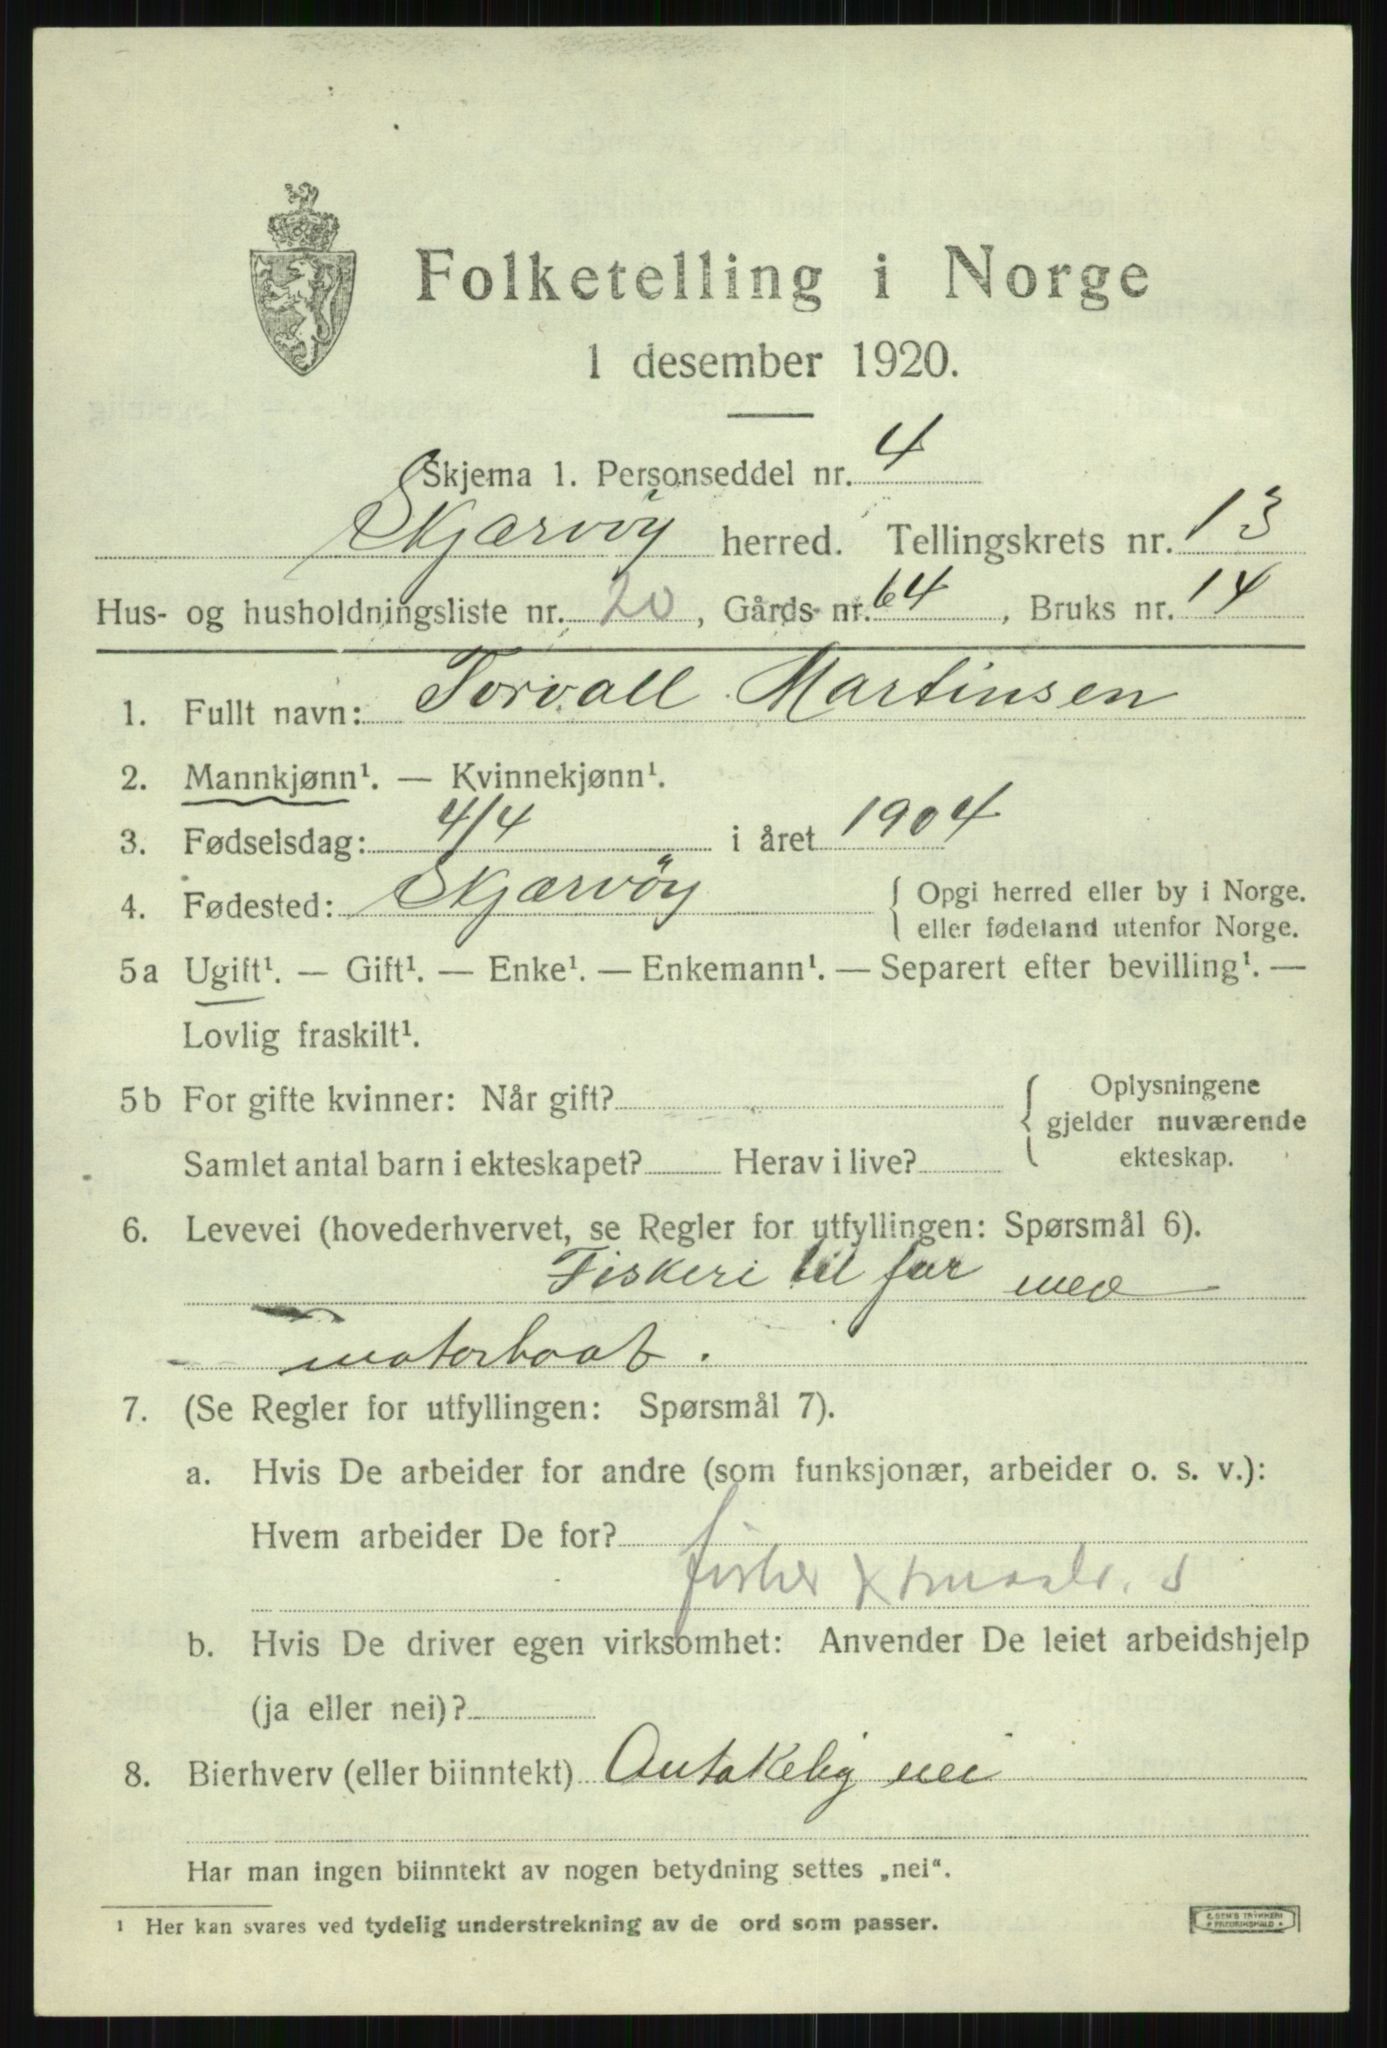 Folketelling i Norge
1 desember 1920.
Skjema 1. Personseddel nr. 4
Skjærvöy herred. Tellingskrets nr. 13
Hus- og husholdningsliste nr. 20, Gårds- nr. 64, Bruks nr. 14
1. Fullt navn: Torvall Martinsen
2. Mannkjønn¹. — Kvinnekjønn¹.
3. Fødselsdag: 4/4 i året 1904
4. Fødested: Skjærvöy { Opgi herred eller by i Norge.
eller fødeland utenfor Norge.
5a Ugift¹. — Gift¹. — Enke¹. — Enkemann¹. — Separert efter bevilling¹. —
Lovlig fraskilt¹.
5b For gifte kvinner: Når gift? { Oplysningene
gjelder nuværende
Samlet antal barn i ekteskapet? Herav i live? ekteskap.
6. Levevei (hovederhvervet, se Regler for utfyllingen: Spørsmål 6).
Fiskeri til far med
motorboat.
7. (Se Regler for utfyllingen: Spørsmål 7).
a. Hvis De arbeider for andre (som funksjonær, arbeider o. s. v.):
Hvem arbeider De for?
fisker x
b. Hvis De driver egen virksomhet: Anvender De leiet arbeidshjelp
(ja eller nei)?
8. Bierhverv (eller biinntekt) Antakelig nei
Har man ingen biinntekt av nogen betydning settes „nei“.
¹ Her kan svares ved tydelig understrekning av de ord som passer.